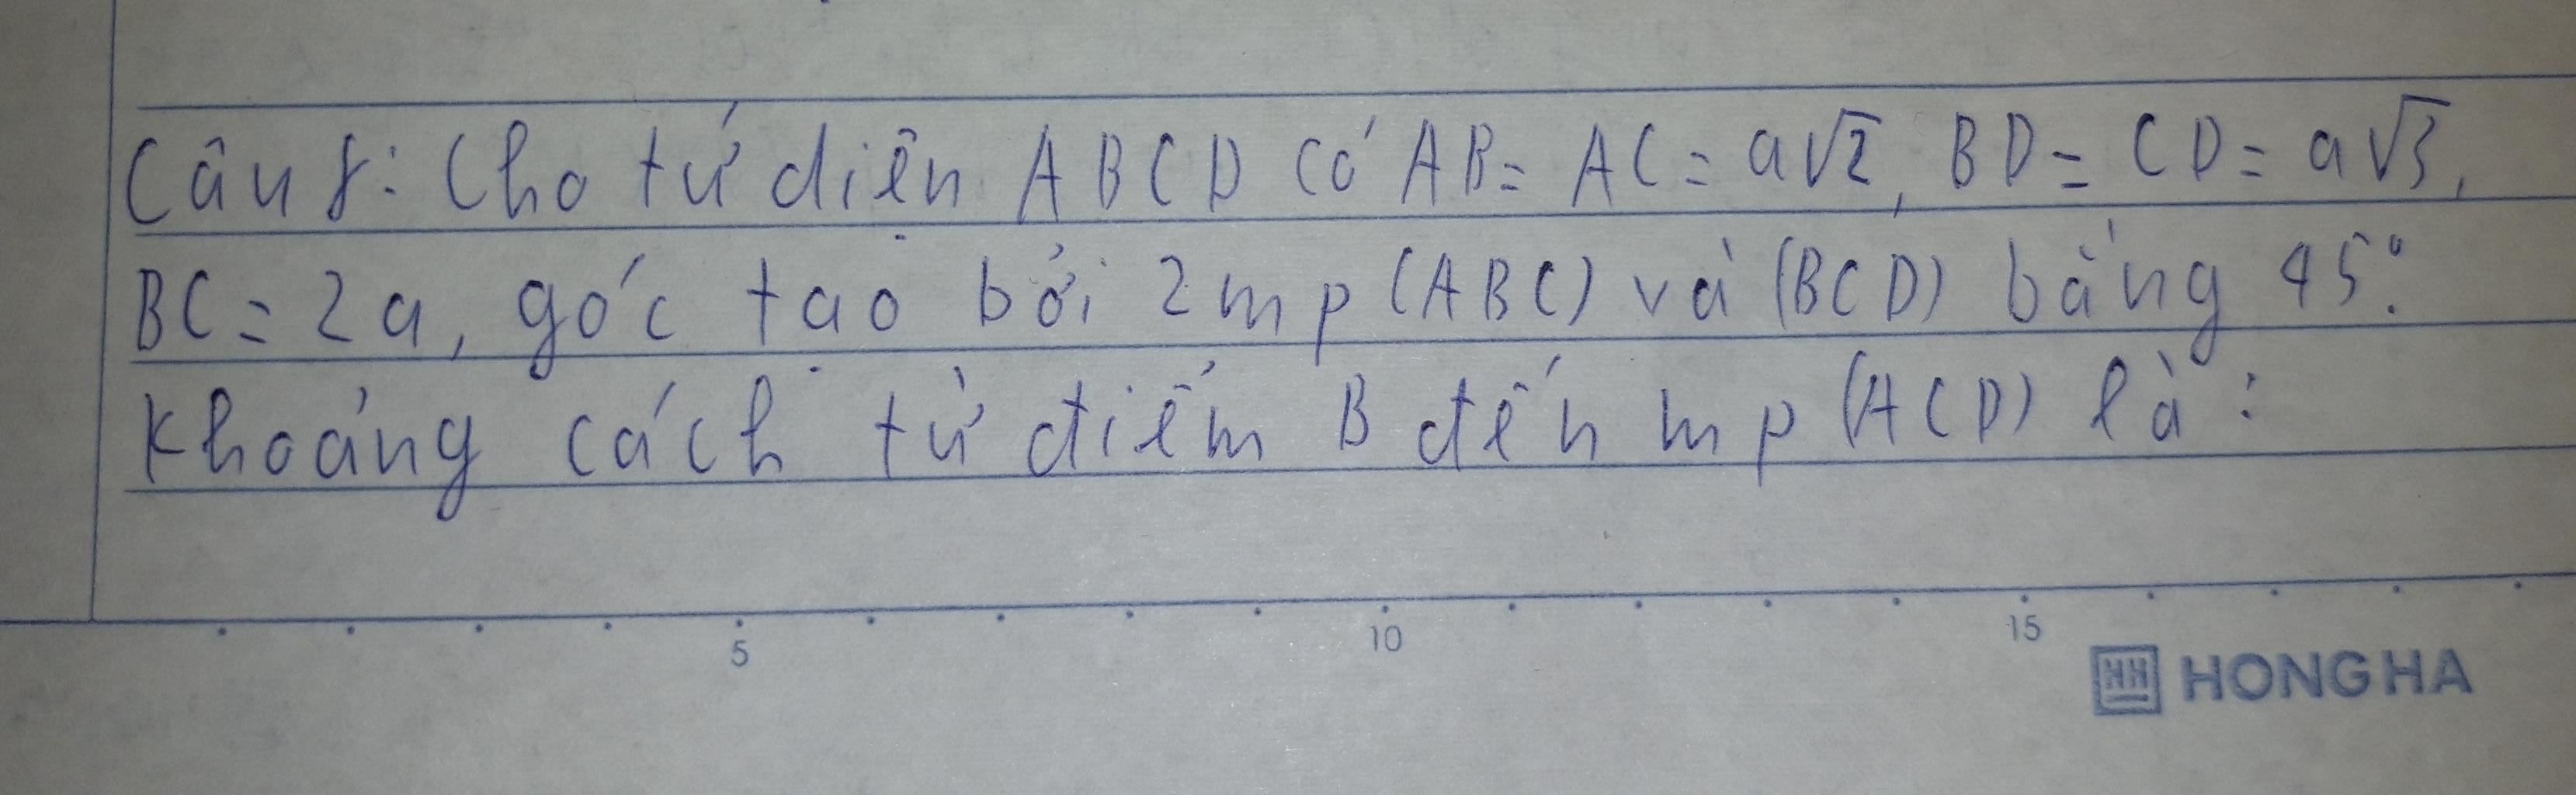 Câu 8: Cho tứ diện ABCD có AB = AC = a√2, BD = CD = a√3,
BC = 2a, góc tạo bởi 2 mp (ABC) và (BCD) bằng 45°.
Khoảng cách từ điểm B đến mp (ACD) là:
5 10 15
HH HONG HA